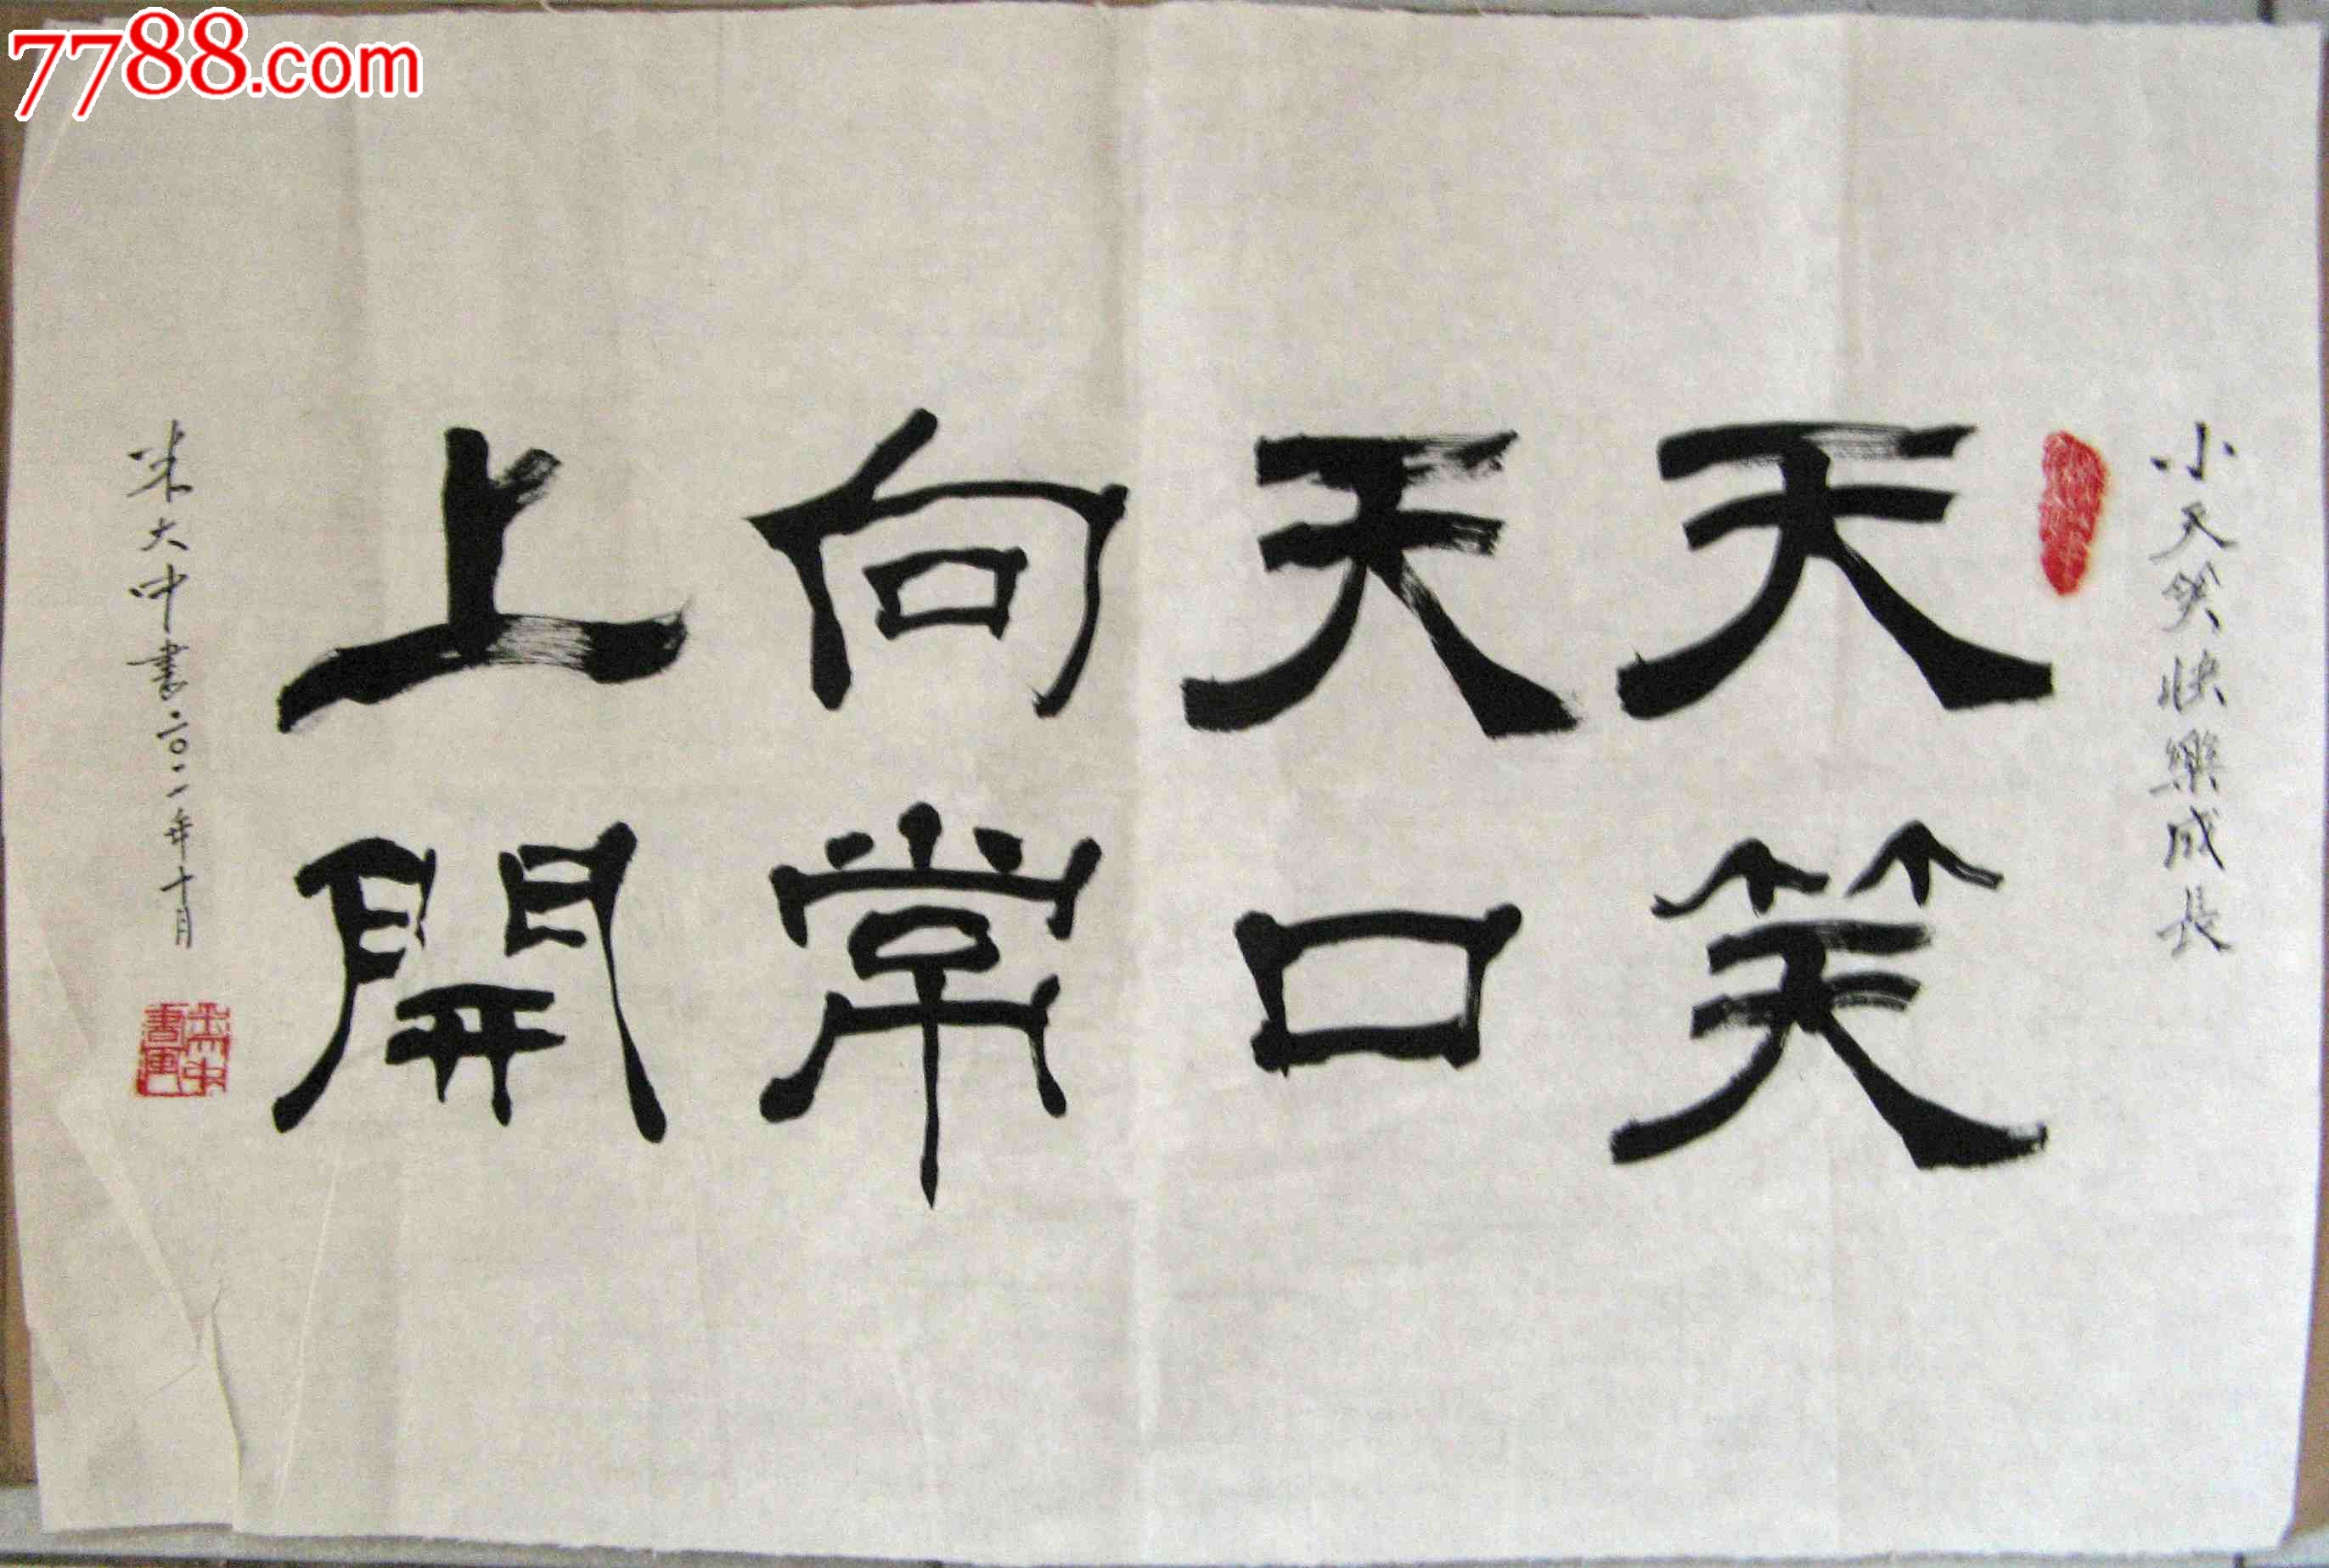 7788.com
小天笑快樂成長
天天向上
笑口常開
朱大中書二〇一一年十月